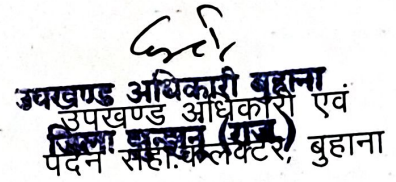 उपखण्ड अधिकारी बुहाना
उपखण्ड अधिकारी एवं
जिला झुन्झुनू (राज.)
पदेन सहा. कलेक्टर, बुहाना